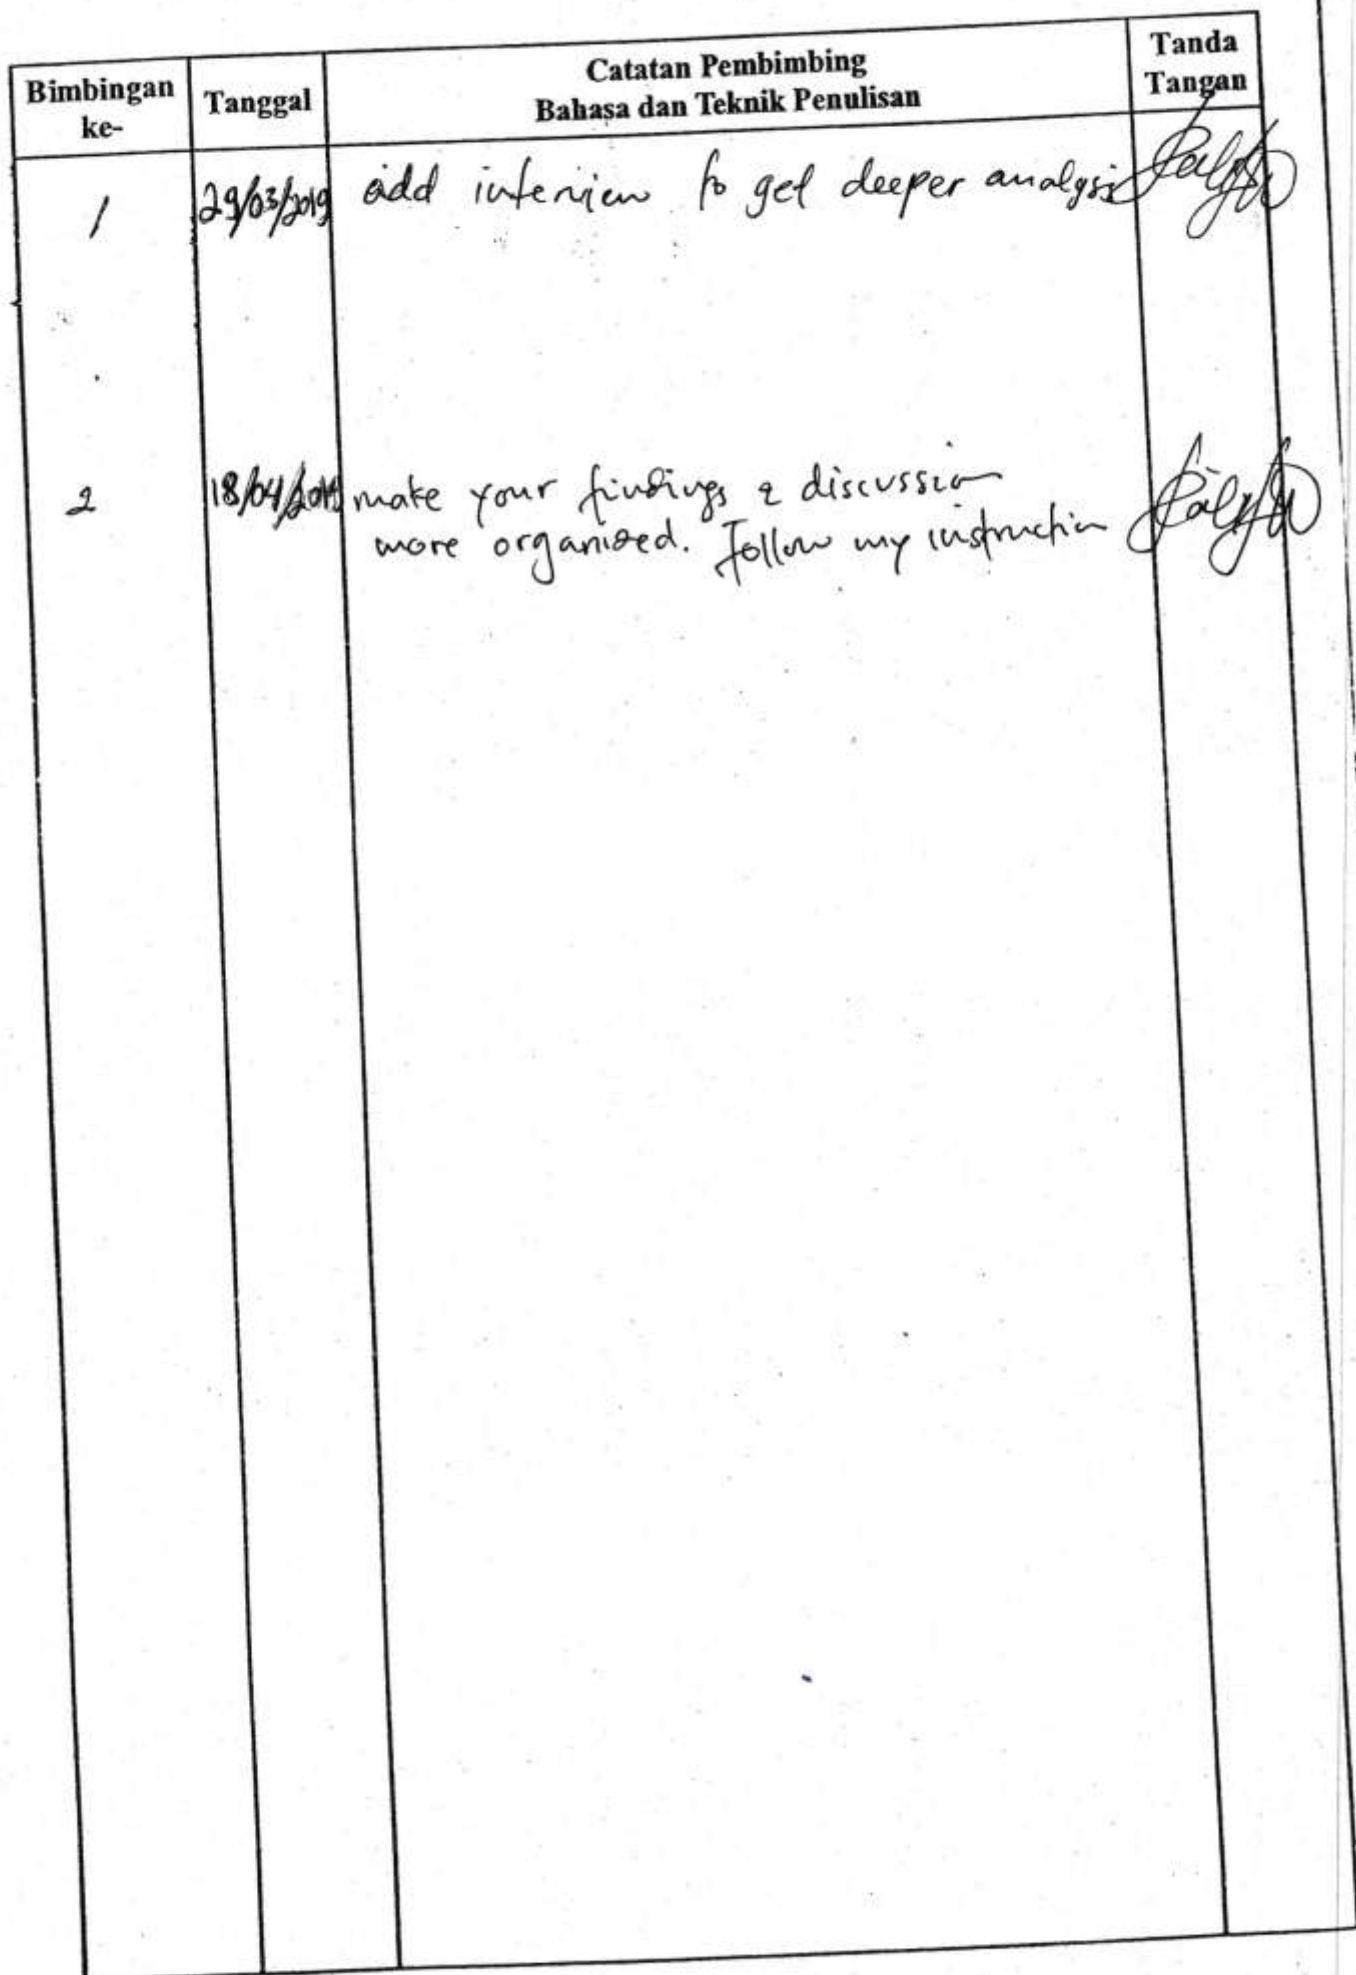 Bimbingan ke-
Tanggal
Catatan Pembimbing
Bahasa dan Teknik Penulisan
Tanda
Tangan
1
29/03/2019
add interview to get deeper analysis
2
18/04/2019
make your findings & discussion
more organized. Follow my instruction